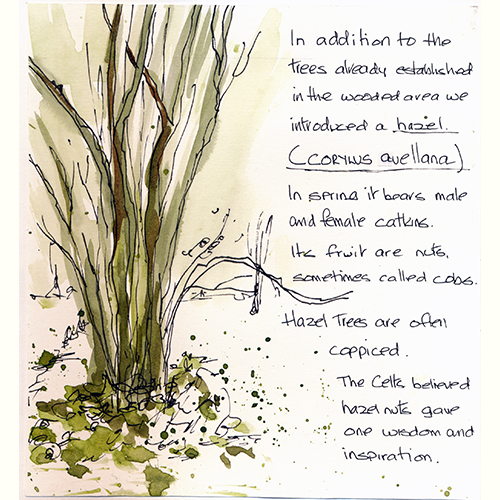 In addition to the
trees already established
in the wooded area we
introduced a hazel.
(corylus avellana)
In spring it bears male
and female catkins.
Its fruit are nuts,
sometimes called cobs.
Hazel Trees are often
coppiced.
The Celts believed
hazel nuts gave
one wisdom and
inspiration.